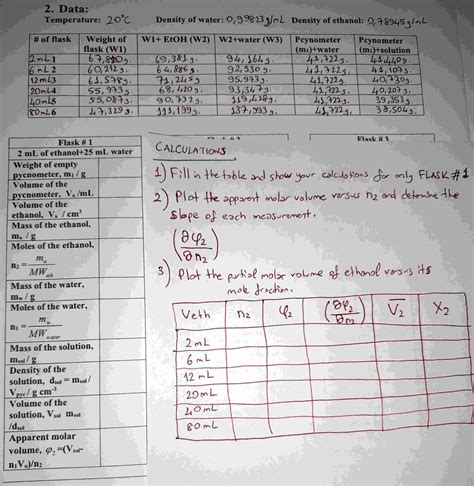 2. Data:
Temperature: 20°C Density of water: 0,99823g/mL Density of ethanol: 0,78945g/mL
# of flask Weight of flask (W1) W1+ EtOH (W2) W2+water (W3) Pcynometer (m₁)+water Pcynometer (m₁)+solution
2mL1 69,381g. 94,164g. 41,722g. 41,440g.
6mL2 60,212g. 64,886g. 92,530g. 41,722g. 41,107g.
12mL3 61,578g. 71,245g. 95,973g. 41,722g. 40,730g.
20mL4 55,973g. 68,420g. 93,347g. 41,722g. 40,207g.
40mL5 55,087g. 90,732g. 119,428g. 41,722g. 39,353g.
80mL6 47,329g. 113,199g. 137,993g. 41,722g. 38,504g.
Flask # 1
2 mL of ethanol+25 mL water
Weight of empty pycnometer, m₁ / g
Volume of the pycnometer, Vₒ /mL
Volume of the ethanol, Vₒ / cm³
Mass of the ethanol, mₒ / g
Moles of the ethanol,
n₂ = mₒ / MW eth
Mass of the water, mw / g
Moles of the water,
n₁ = mw / MW water
Mass of the solution, msol / g
Density of the solution, dsol = msol / Vpyc / g cm⁻³
Volume of the solution, Vsol msol /dsol
Apparent molar volume, φ₂ =(Vsol- n₁V₀)/n₂
Flask # 3
CALCULATIONS
1) Fill in the table and show your calculations for only FLASK #1
2) Plot the apparent molar volume versus n2 and determine the
slope of each measurement.
(∂φ2/∂n2)
3) Plot the partial molar volume of ethanol versus its
mole fraction.
Veth n2 φ2 (∂φ2/∂n2) V̅2 X2
2mL
6mL
12 mL
20mL
40mL
80mL